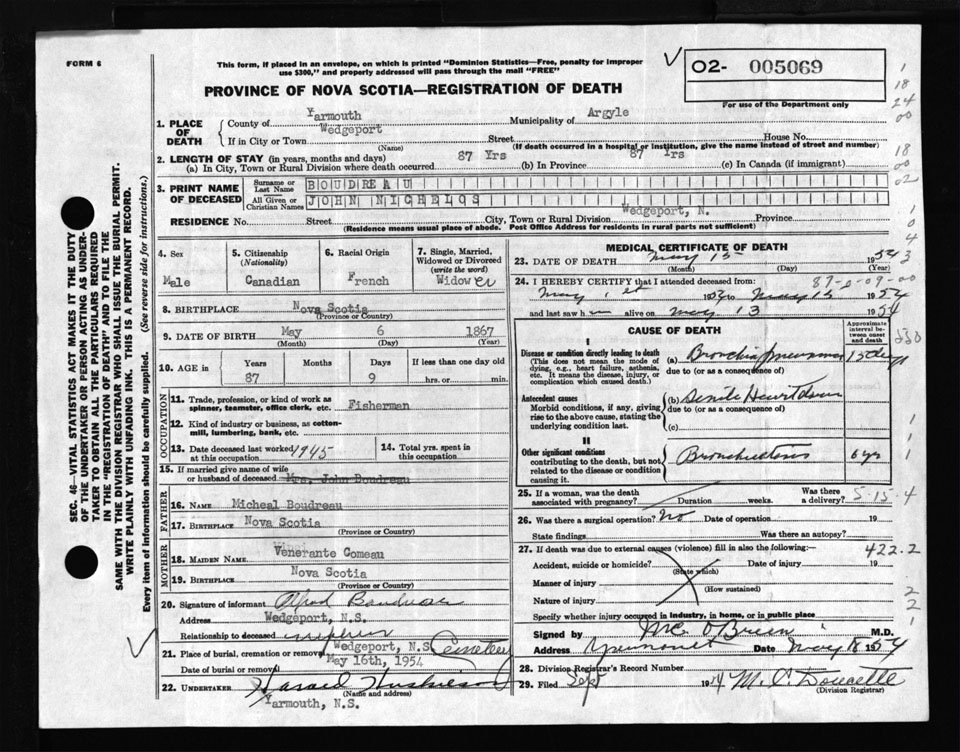 FORM 6
This form, if placed in an envelope, on which is printed "Dominion Statistics—Free, penalty for improper
use $300," and properly addressed will pass through the mail "FREE"
02- 005069
For use of the Department only
PROVINCE OF NOVA SCOTIA—REGISTRATION OF DEATH
SEC. 46—VITAL STATISTICS ACT MAKES IT THE DUTY
OF THE UNDERTAKER OR PERSON ACTING AS UNDER-
TAKER TO OBTAIN ALL THE PARTICULARS REQUIRED
IN THE "REGISTRATION OF DEATH" AND TO FILE THE
SAME WITH THE DIVISION REGISTRAR WHO SHALL ISSUE THE BURIAL PERMIT.
WRITE PLAINLY WITH UNFADING INK. THIS IS A PERMANENT RECORD.
Every item of information should be carefully supplied. (See reverse side for instructions.)
1. PLACE OF DEATH
County of Yarmouth Municipality of Argyle
If in City or Town Wedgeport Street House No.
(Name) (If death occurred in a hospital or institution, give the name instead of street and number)
2. LENGTH OF STAY (in years, months and days)
(a) In City, Town or Rural Division where death occurred 87 Yrs (b) In Province 87 Yrs (c) In Canada (if immigrant)
3. PRINT NAME OF DECEASED
Surname or Last Name BOUDREAU
All Given or Christian Names JOHN NICHELOS
RESIDENCE No. Street City, Town or Rural Division Wedgeport, N. Province
(Residence means usual place of abode. Post Office Address for residents in rural parts not sufficient)
4. Sex
Male
5. Citizenship (Nationality)
Canadian
6. Racial Origin
French
7. Single, Married, Widowed or Divorced (write the word)
Widower
8. BIRTHPLACE Nova Scotia
(Province or Country)
9. DATE OF BIRTH May 6 1867
(Month) (Day) (Year)
10. AGE in Years Months Days If less than one day old
87 9 hrs. or min.
OCCUPATION
11. Trade, profession, or kind of work as
spinner, teamster, office clerk, etc. Fisherman
12. Kind of industry or business, as cotton-
mill, lumbering, bank, etc.
13. Date deceased last worked at this occupation 1945
14. Total yrs. spent in this occupation
15. If married give name of wife
or husband of deceased Mrs. John Boudreau
FATHER
16. NAME Micheal Boudreau
17. BIRTHPLACE Nova Scotia
(Province or Country)
MOTHER
18. MAIDEN NAME Venerante Comeau
19. BIRTHPLACE Nova Scotia
(Province or Country)
20. Signature of informant Alfred Boudreau
Address Wedgeport, N.S.
Relationship to deceased nephew
21. Place of burial, cremation or removal Wedgeport, N.S Cemetery
Date of burial or removal May 16th, 1954
22. UNDERTAKER
(Name and address)
Yarmouth, N.S.
MEDICAL CERTIFICATE OF DEATH
23. DATE OF DEATH May 15 1954
(Month) (Day) (Year)
24. I HEREBY CERTIFY that I attended deceased from: 87-0-09-00
May 1954 to May 15 1954
and last saw h alive on May 13 1954
CAUSE OF DEATH
Approximate interval between onset and death
I
Disease or condition directly leading to death
(This does not mean the mode of
dying, e.g., heart failure, asthenia,
etc. It means the disease, injury, or
complication which caused death.)
(a) Bronchia pneumonia 15 days
due to (or as a consequence of)
Antecedent causes
Morbid conditions, if any, giving
rise to the above cause, stating the
underlying condition last.
(b) Senile Heart
due to (or as a consequence of)
(c)
II
Other significant conditions
contributing to the death, but not
related to the disease or condition
causing it.
6 yrs
25. If a woman, was the death
associated with pregnancy? Duration weeks. Was there a delivery? 5.15.4
26. Was there a surgical operation? No Date of operation 19
State findings Was there an autopsy?
27. If death was due to external causes (violence) fill in also the following:— 422.2
Accident, suicide or homicide? Date of injury 19
(State which)
Manner of injury
(How sustained)
Nature of injury
Specify whether injury occurred in industry, in home, or in public place
Signed by O'Brien M.D.
Address Date May 18 1954
28. Division Registrar's Record Number
29. Filed Sept 1954 M. C. Doucette
(Division Registrar)